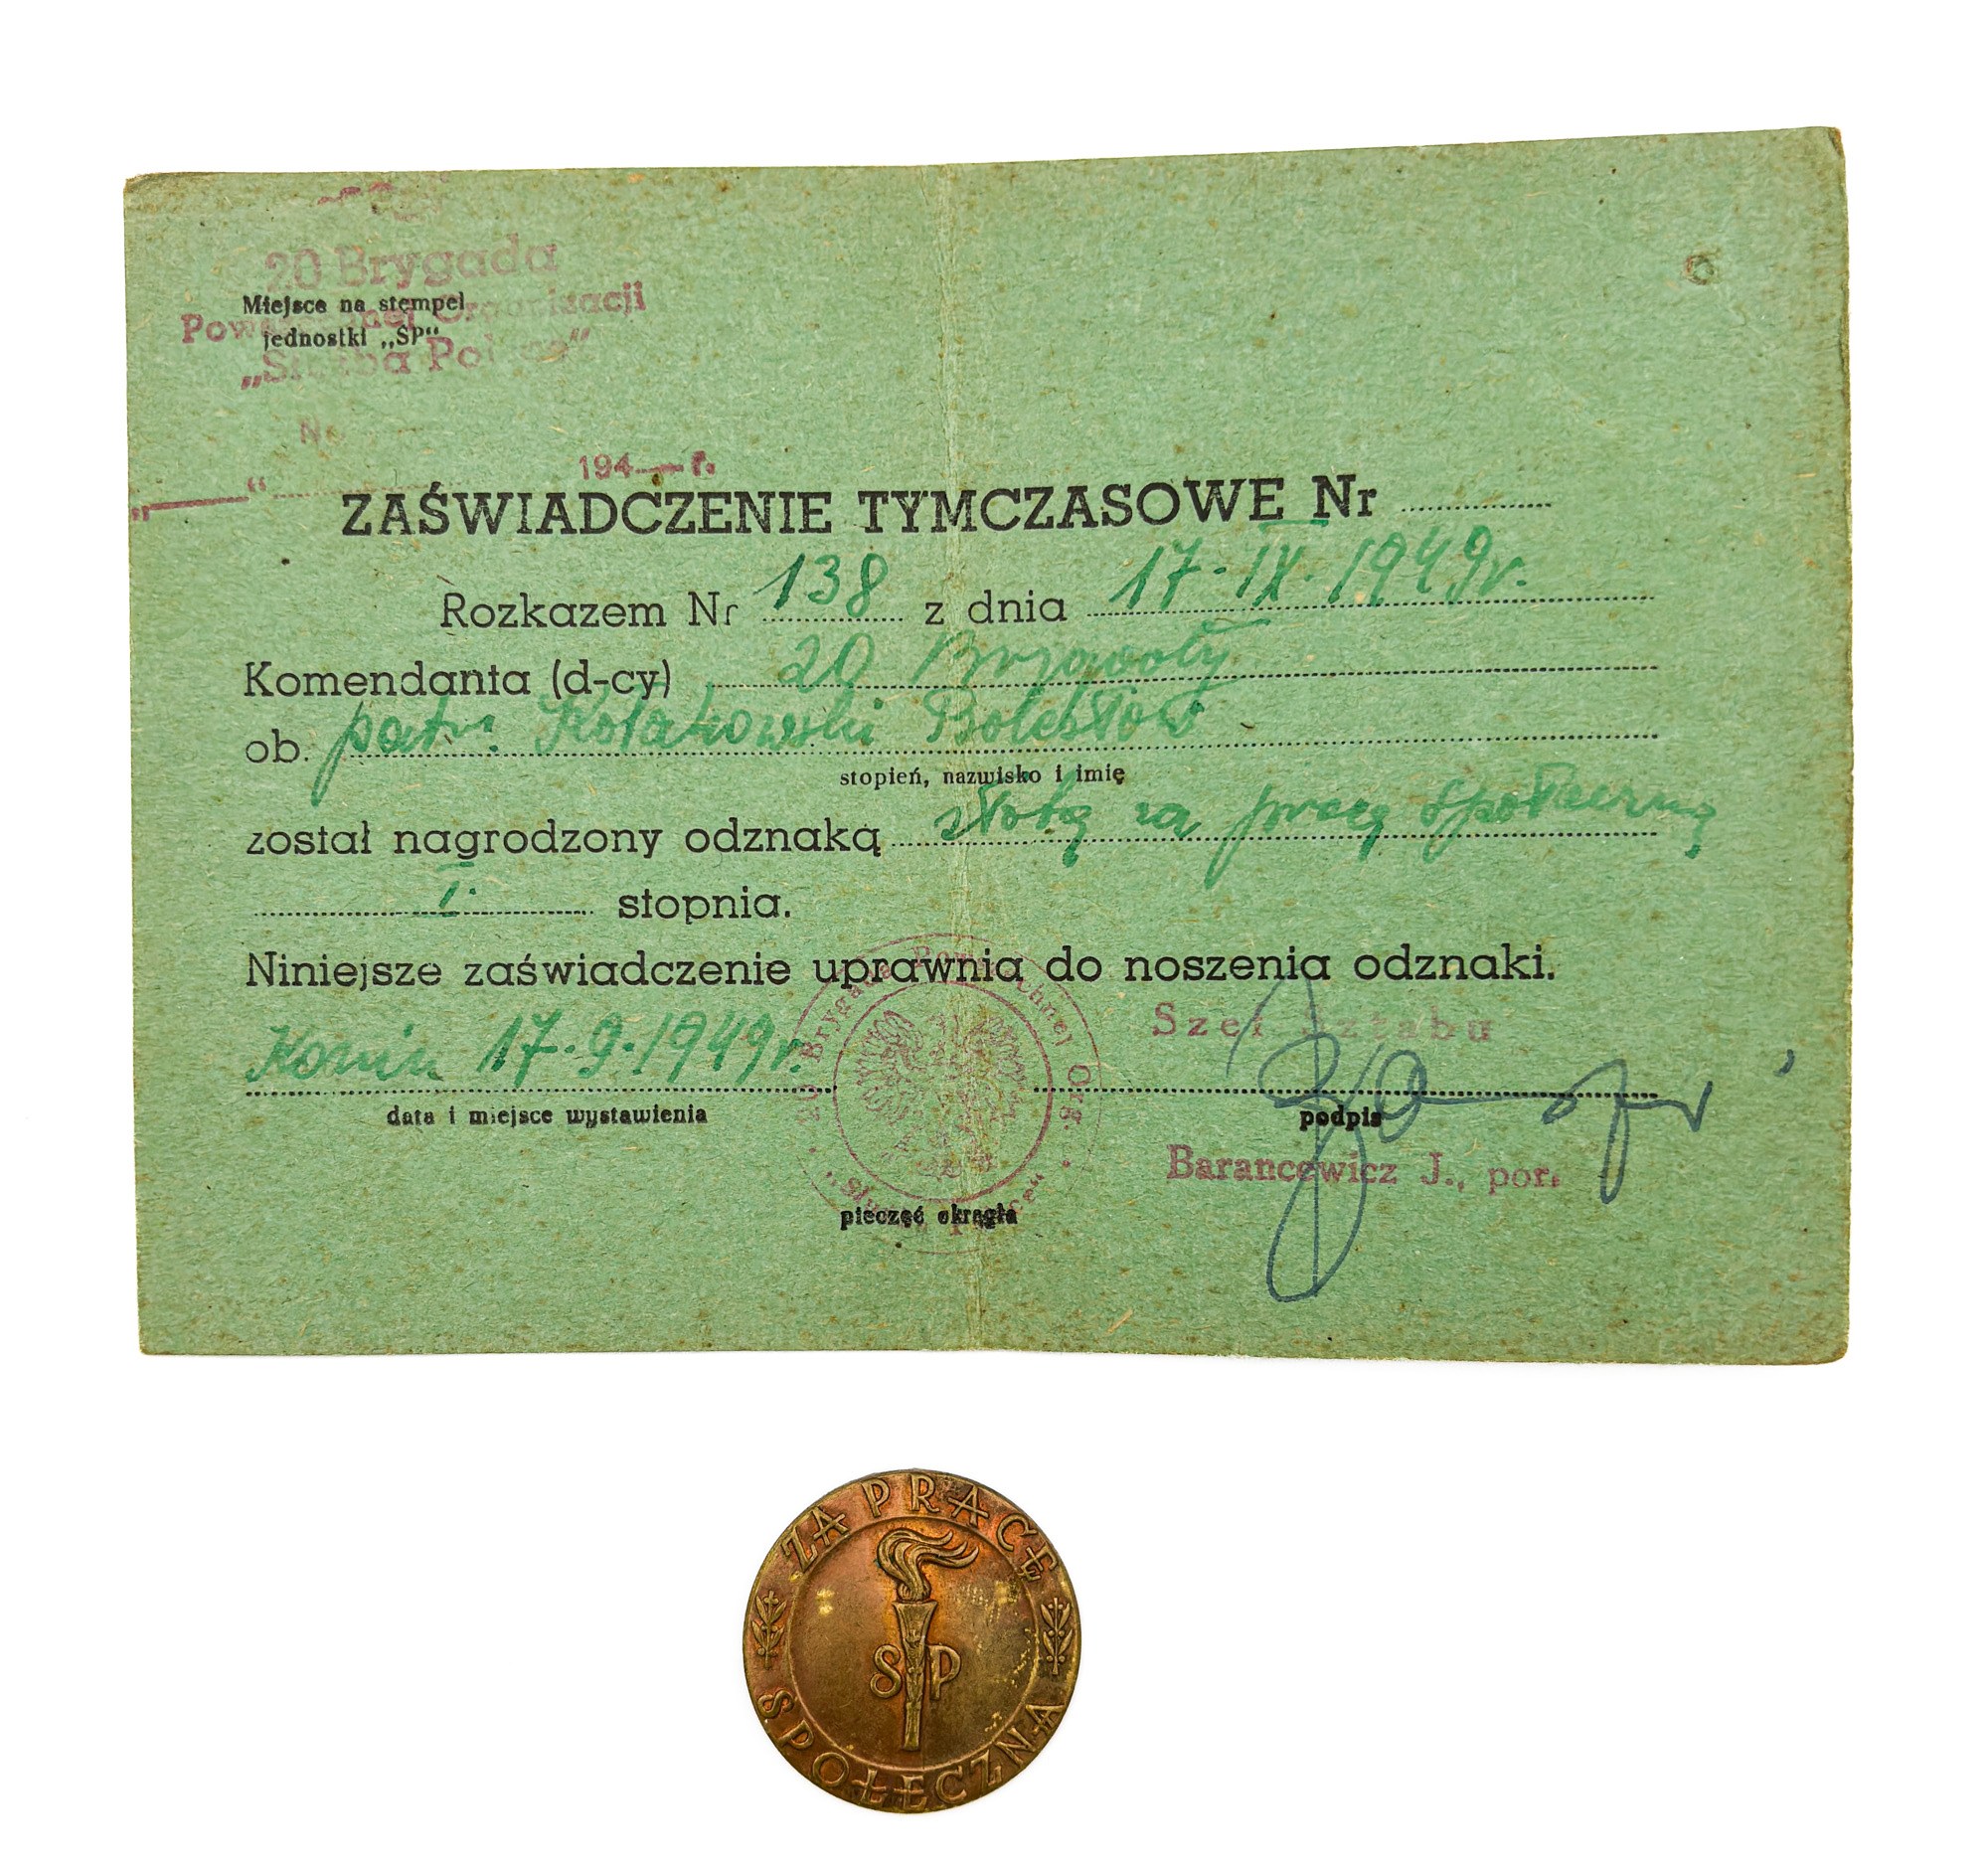 20 Brygada
Miejsce na stempel
Powszechnej Organizacji
jednostki „SP“
„Służba Polsce”
No
„ “ 194 r.
ZAŚWIADCZENIE TYMCZASOWE Nr
Rozkazem Nr 138 z dnia 17·IX·1949r.
Komendanta (d-cy) 20 Brygady
ob. patr. Kołakowski Bolesław
stopień, nazwisko i imię
został nagrodzony odznaką złotą za pracę społeczną
I. stopnia.
Niniejsze zaświadczenie uprawnia do noszenia odznaki.
Szef Sztabu
Konin 17·9·1949r.
data i miejsce wystawienia
podpis
Barancewicz J., por.
20 Brygada Powszechnej Org. „Służba Polsce“
pieczęć okrągła
ZA PRACĘ
SP
SPOŁECZNĄ